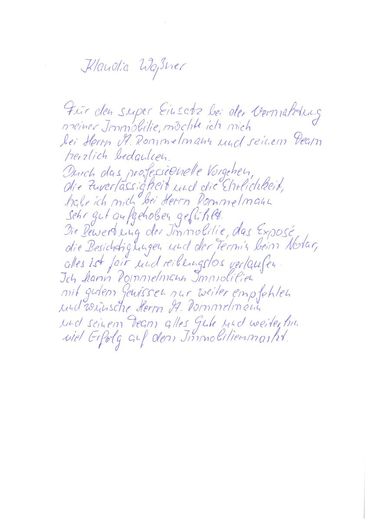 Klaudia Waßner
Für den super Einsatz bei der Vermarktung
meiner Immobilie, möchte ich mich
bei Herrn M. Dommelmann und seinem Team
herzlich bedanken.
Durch das professionelle Vorgehen,
die Zuverlässigkeit und die Ehrlichkeit,
habe ich mich bei Herrn Dommelmann
sehr gut aufgehoben gefühlt.
Die Bewertung der Immobilie, das Exposé
die Besichtigungen und der Termin beim Notar,
alles ist fair und reibungslos verlaufen.
Ich kann Dommelmann Immobilien
mit gutem Gewissen nur weiter empfehlen
und wünsche Herrn M. Dommelmann
und seinem Team alles Gute und weiterhin
viel Erfolg auf dem Immobilienmarkt.